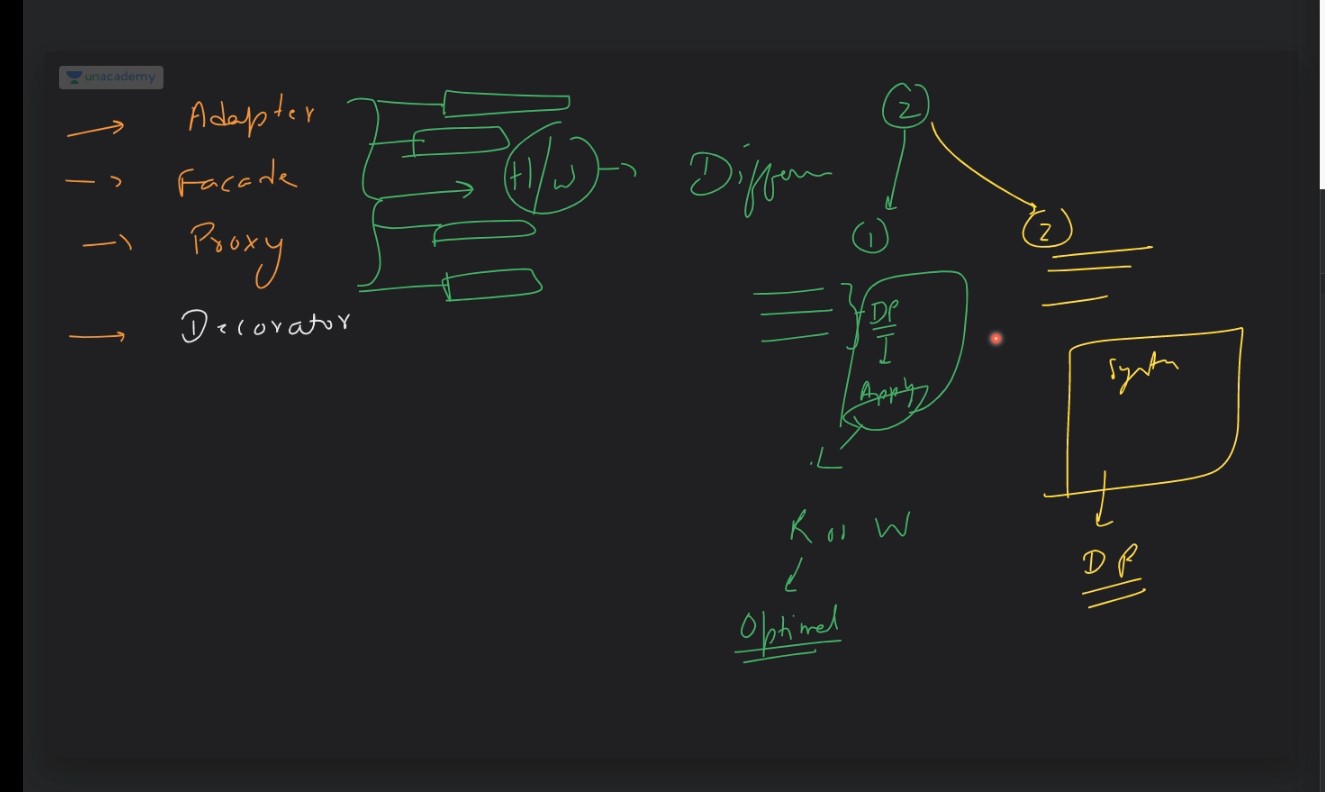 unacademy
Adapter
Facade
Proxy
Decorator
H/W
Differen
2
1
DP
I
Apply
R or W
Optimal
2
System
DP